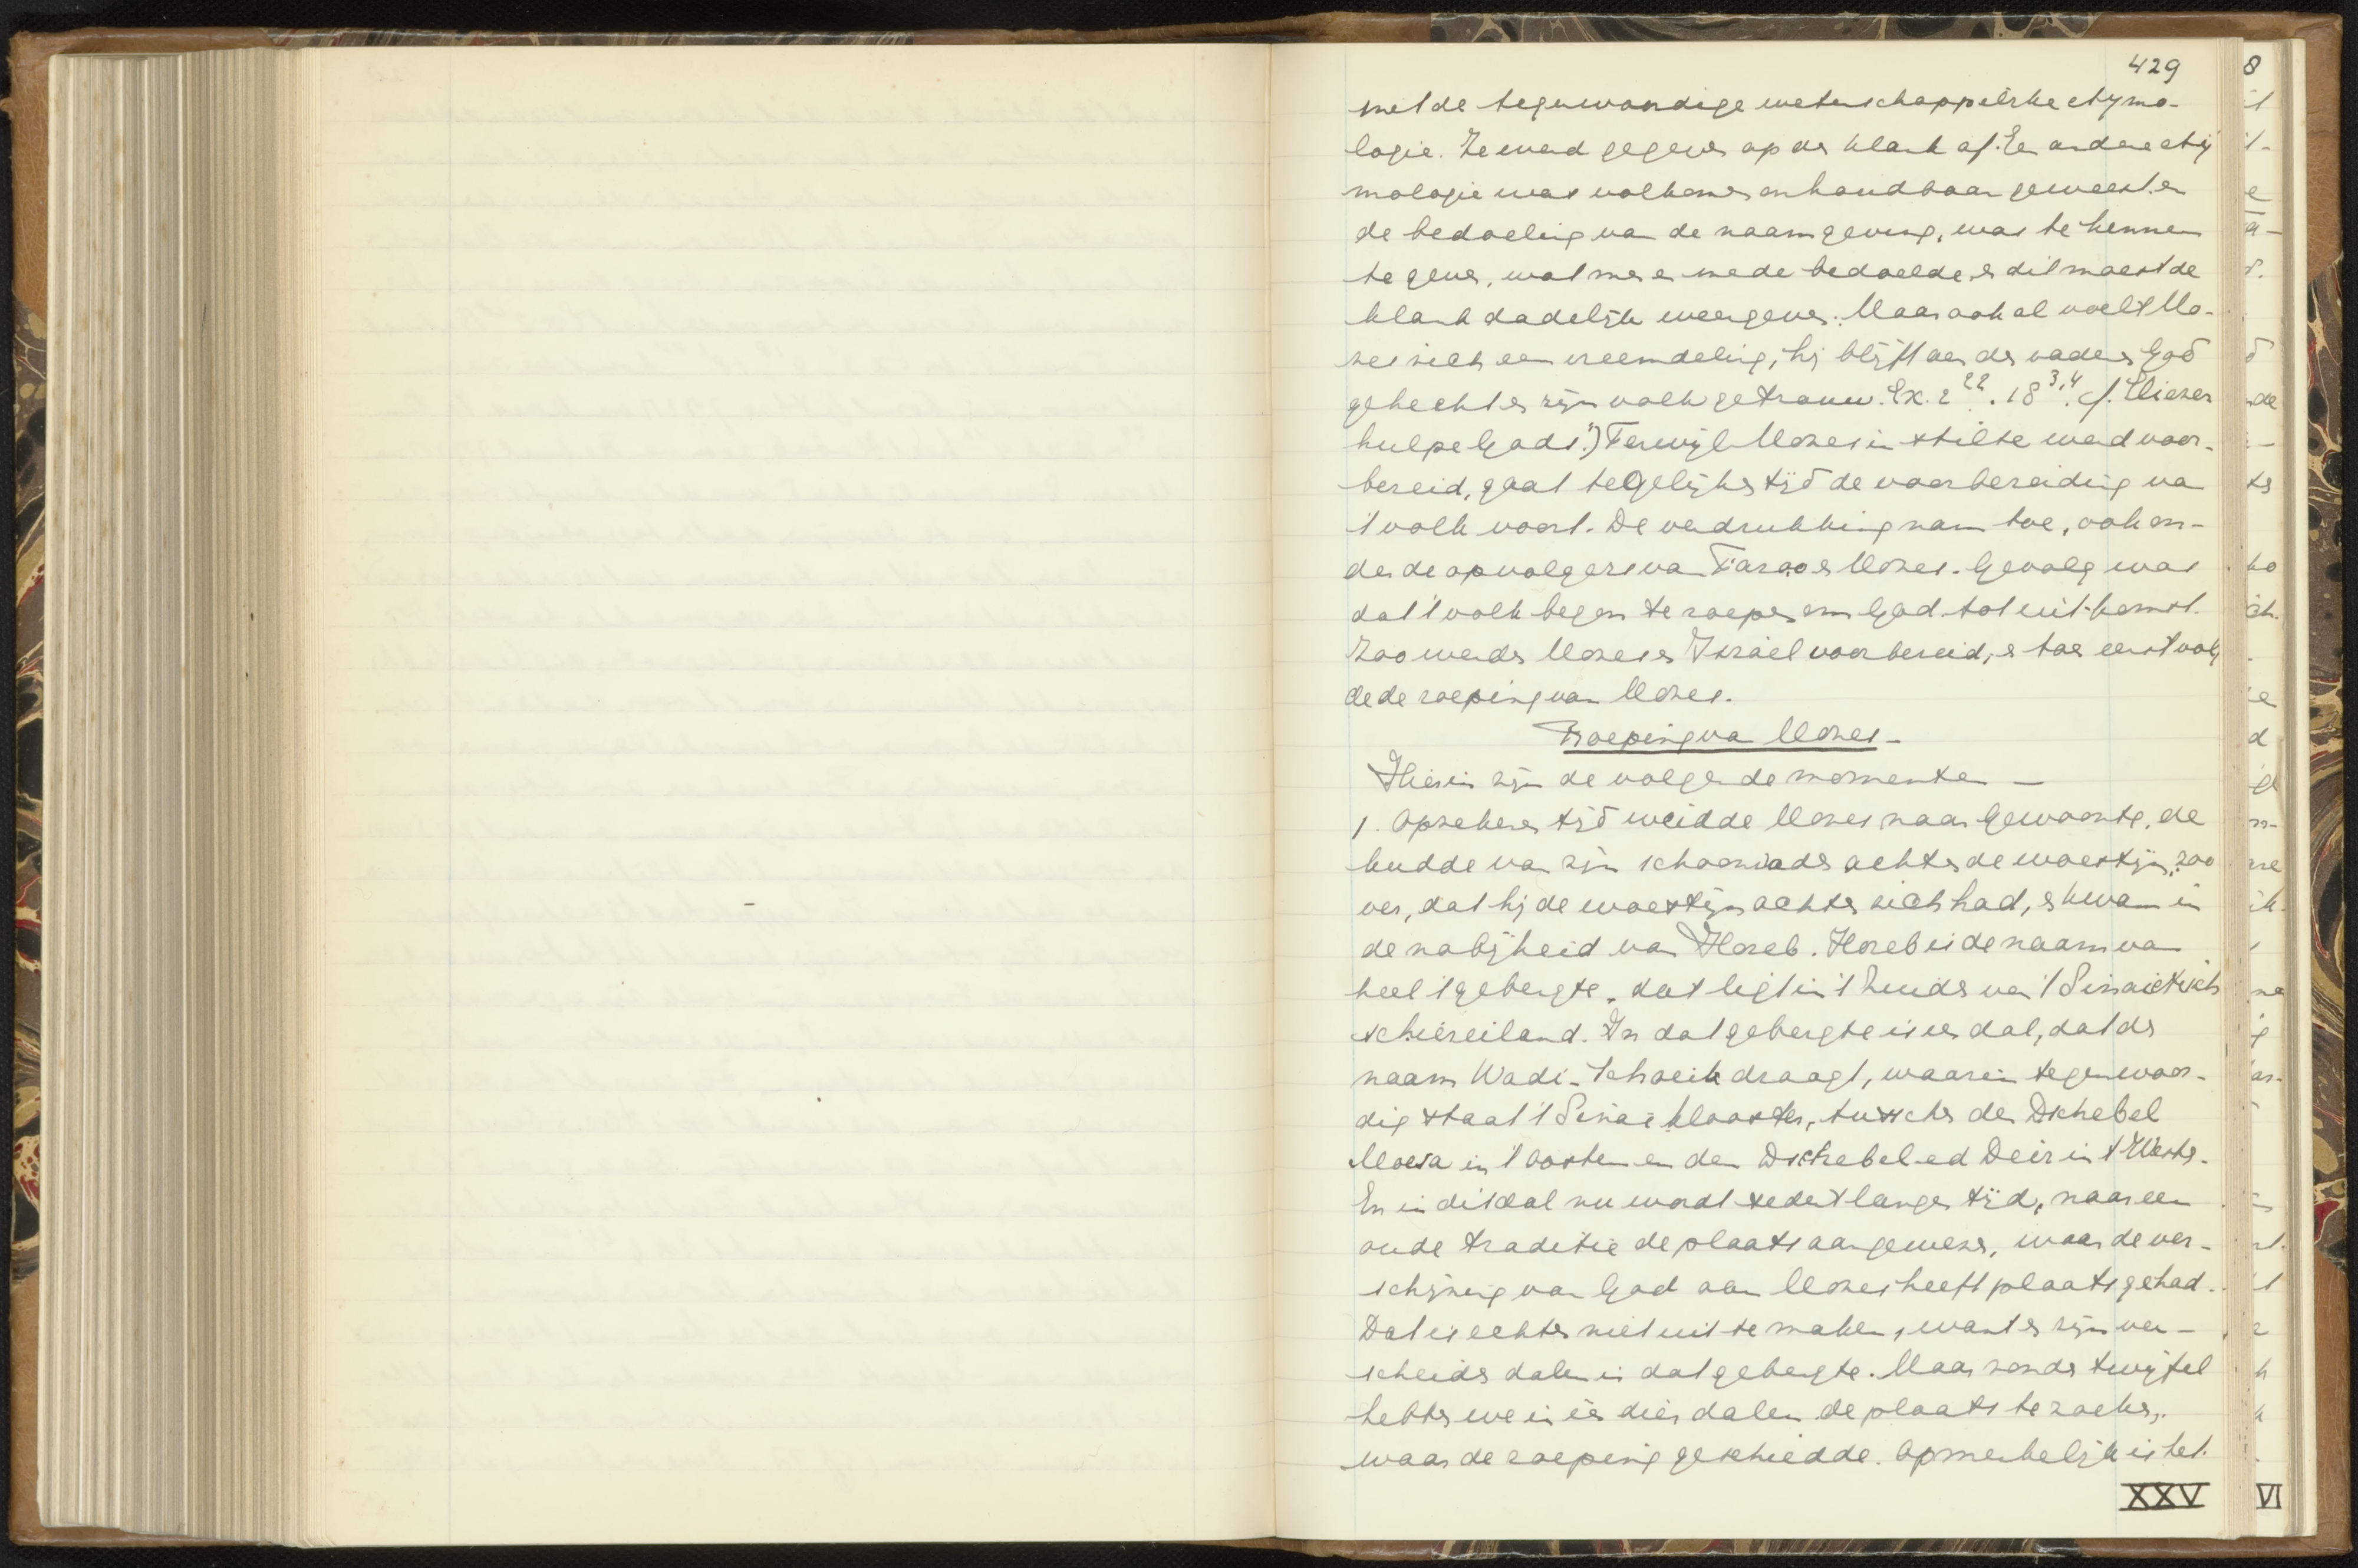 429
met de tegenwoordige wetenschappelijke etymo-
logie. Ze werd gegeven op de klank af. En andere ety
mologie was volkomen onhoudbaar geweest en
de bedoeling van de naamgeving, was te kennen
te geven, wat men er mede bedoelde, en dit moest de
klank dadelijk weergeven. Maar ook al voelt Mo-
zes zich een vreemdeling, hij blijft aan der vaderen God
gehecht en zijn volk getrouw. Ex. 2 22. 18 3,4. cf. Eliezer
hulpe Gods.") Terwijl Mozes in stilte werd voor-
bereid, gaat te gelijker tijd de voorbereiding van
't volk voort. De verdrukking nam toe, ook on-
der de opvolgers van Farao en Mozes. Gevolg was
dat 't volk begon te roepen om God tot uitkomst.
Zoo werden Mozes en Israël voorbereid, en toen eerst volg
de de roeping van Mozes.
Roeping van Mozes.
Hierin zijn de volgende momenten —
1. Op zekeren tijd weidde Mozes naar gewoonte, de
kudde van zijn schoonvader achter de woestijn, zoo
ver, dat hij de woestijn achter zich had, en kwam in
de nabijheid van Horeb. Horeb is de naam van
heel 't gebergte, dat ligt in 't Zuiden van 't Sinaietisch
schiereiland. In dat gebergte is een dal, dat de
naam Wadi-Schoeib draagt, waarin tegenwoor-
dig staat 't Sinaï klooster, tusschen den Dschebel
Moesa in 't Oosten en den Dschebel-ed Deir in 't Westen.
En in dit dal nu wordt sedert langen tijd, naar een
oude traditie de plaats aangewezen, waar de ver-
schijning van God aan Mozes heeft plaats gehad.
Dat is echter niet uit te maken, want er zijn ver-
scheiden dalen in dat gebergte. Maar zonder twijfel
hebben we in één dier dalen de plaats te zoeken,
waar de roeping geschiedde. Opmerkelijk is het.
XXV
8
VI